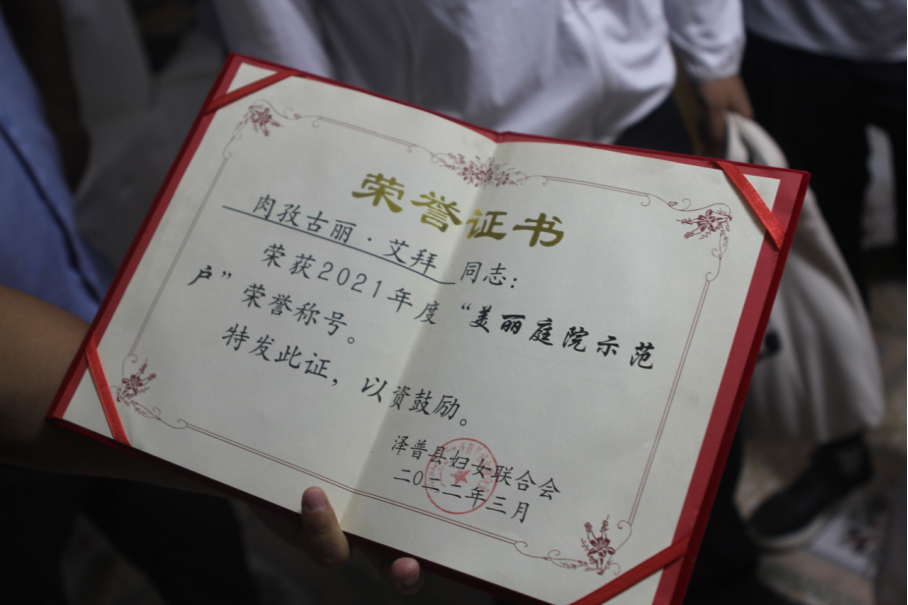 荣誉证书
肉孜古丽·艾拜 同志：
荣获2021年度“美丽庭院示范
户”荣誉称号。
特发此证，以资鼓励。
泽普县妇女联合会
二〇二二年三月